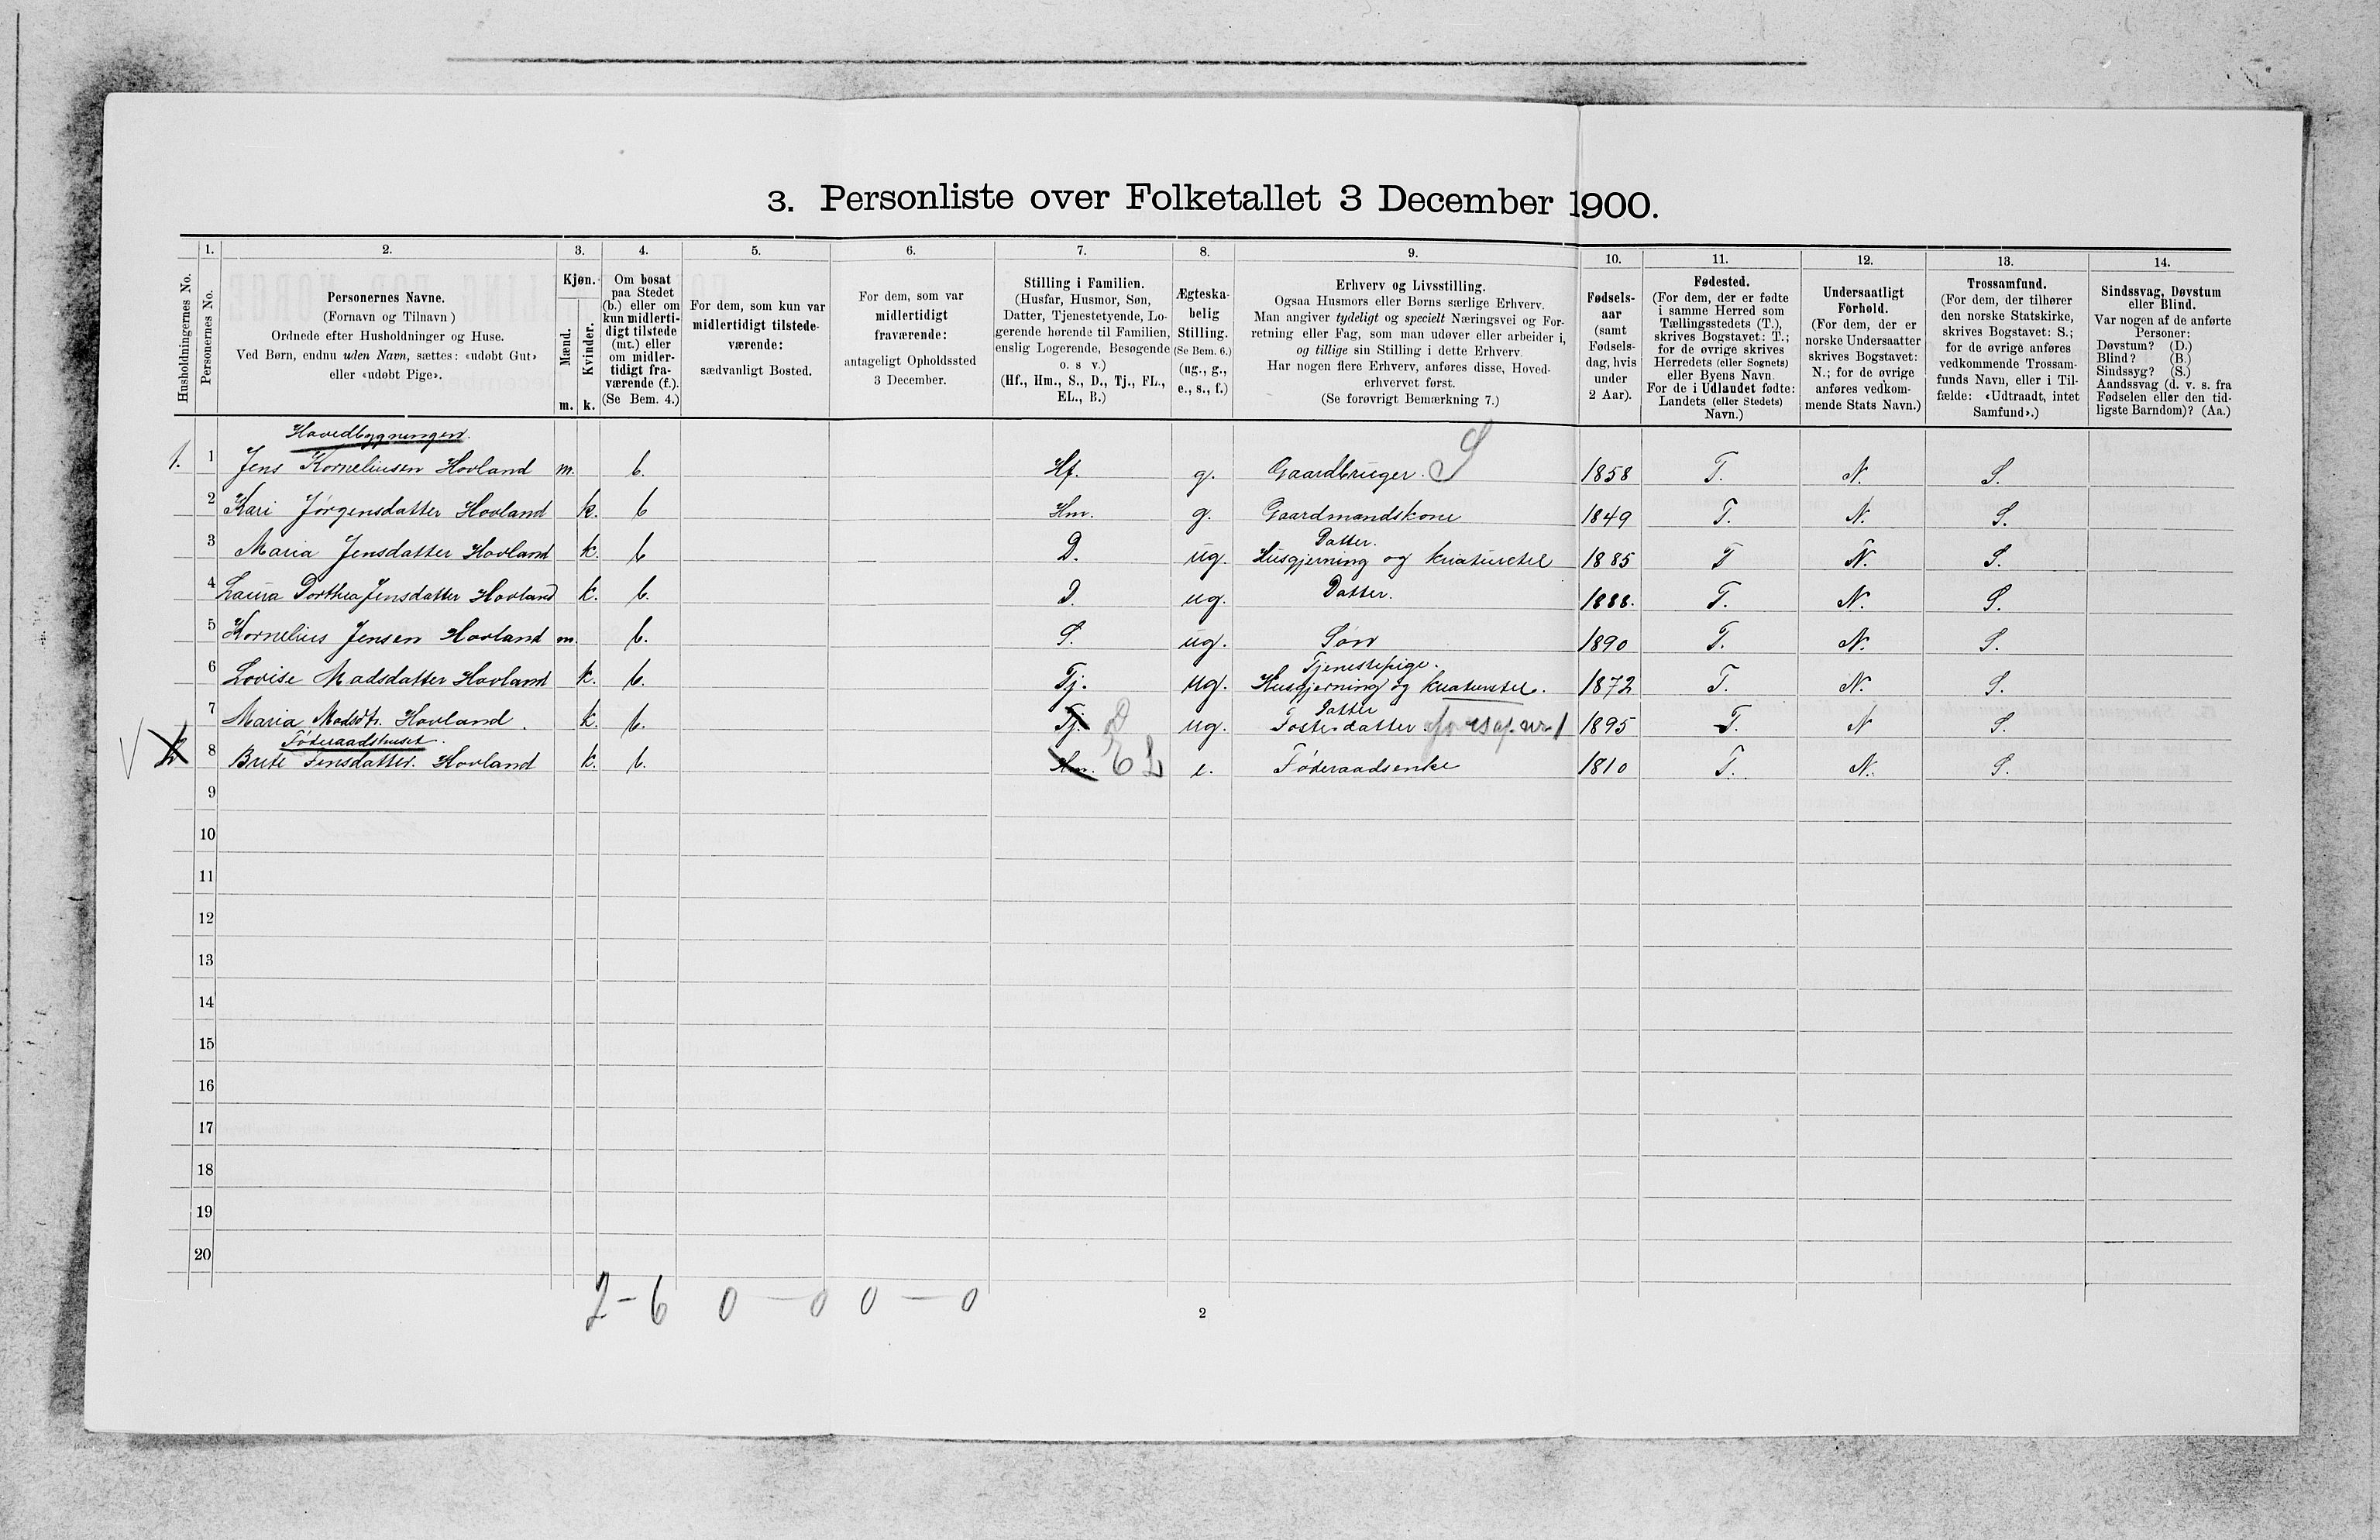 3. Personliste over Folketallet 3 December 1900.
Husholdningernes No.
1.
Personernes No.
2.
Personernes Navne.
(Fornavn og Tilnavn)
Ordnede efter Husholdninger og Huse.
Ved Børn, endnu uden Navn, sættes: «udøbt Gut»
eller «udøbt Pige».
3.
Kjøn.
Mænd.
m.
Kvinder.
k.
4.
Om bosat
paa Stedet
(b.) eller om
kun midlerti-
digt tilstede
(mt.) eller
om midler-
tidigt fra-
værende (f.).
(Se Bem. 4.)
5.
For dem, som kun var
midlertidigt tilstede-
værende:
sædvanligt Bosted.
6.
For dem, som var
midlertidigt
fraværende:
antageligt Opholdssted
3 December.
7.
Stilling i Familien.
(Husfar, Husmor, Søn,
Datter, Tjenestetyende, Lo-
gerende hørende til Familien,
enslig Logerende, Besøgende
o. s v.)
(Hf., Hm., S., D., Tj., FL.,
EL., B.)
8.
Ægteska-
belig
Stilling.
(Se Bem. 6.)
(ug., g.,
e., s., f.)
9.
Erhverv og Livsstilling.
Ogsaa Husmors eller Børns særlige Erhverv.
Man angiver tydeligt og specielt Næringsvei og For-
retning eller Fag, som man udøver eller arbeider i,
og tillige sin Stilling i dette Erhverv.
Har nogen flere Erhverv, anføres disse, Hoved-
erhvervet først.
(Se forøvrigt Bemærkning 7.)
10.
Fødsels-
aar
(samt
Fødsels-
dag, hvis
under
2 Aar).
11.
Fødested.
(For dem, der er fødte
i samme Herred som
Tællingsstedets (T.),
skrives Bogstavet: T.;
for de øvrige skrives
Herredets (eller Sognets)
eller Byens Navn.
For de i Udlandet fødte:
Landets (eller Stedets)
Navn.)
12.
Undersaatligt
Forhold.
(For dem, der er
norske Undersaatter
skrives Bogstavet:
N.; for de øvrige
anføres vedkom-
mende Stats Navn.)
13.
Trossamfund.
(For dem, der tilhører
den norske Statskirke,
skrives Bogstavet: S.;
for de øvrige anføres
vedkommende Trossam-
funds Navn, eller i Til-
fælde: «Udtraadt, intet
Samfund».)
14.
Sindssvag, Døvstum
eller Blind.
Var nogen af de anførte
Personer:
Døvstum? (D.)
Blind? (B.)
Sindssyg? (S.)
Aandssvag (d. v. s. fra
Fødselen eller den tid-
ligste Barndom)? (Aa.)
Hovedbygningen.
1. 1 Jens Korneliusen Hovland m. b. Hf. g. Gaardbruger. S 1858 T. N. S.
2 Kari Jørgensdatter Hovland k. b Hm. g. Gaardmandskone 1849 T. N. S.
Datter.
3 Maria Jensdatter Hovland k. b D. ug. Husgjerning og kreaturstel 1885 T N. S.
4 Laura Dorthea Jensdatter Hovland k. b. D. ug. Datter. 1888. T. N. S.
5 Kornelius Jensen Hovland m. b. S. ug. Søn 1890 T. N. S.
Tjenestepige.
6 Lovise Madsdatter Hovland k. b. Tj. ug. Husgjerning og kreaturstel. 1872 T. N. S.
Datter
7 Maria Madsdtr. Hovland. k. b. Tj. D ug. Fosterdatter 1895 T. N S.
Føderaadshuset.
2 8 Brite Jensdatter. Hovland k. b. Hm. EL e. Føderaadsenke 1810 T. N. S.
9
10
11
12
13
14
15
16
17
18
19
20
2-6 0-0 0-0
2